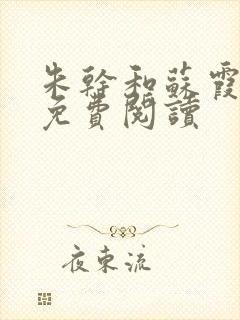 朱幹和蘇霞
免費閱讀
夜東流